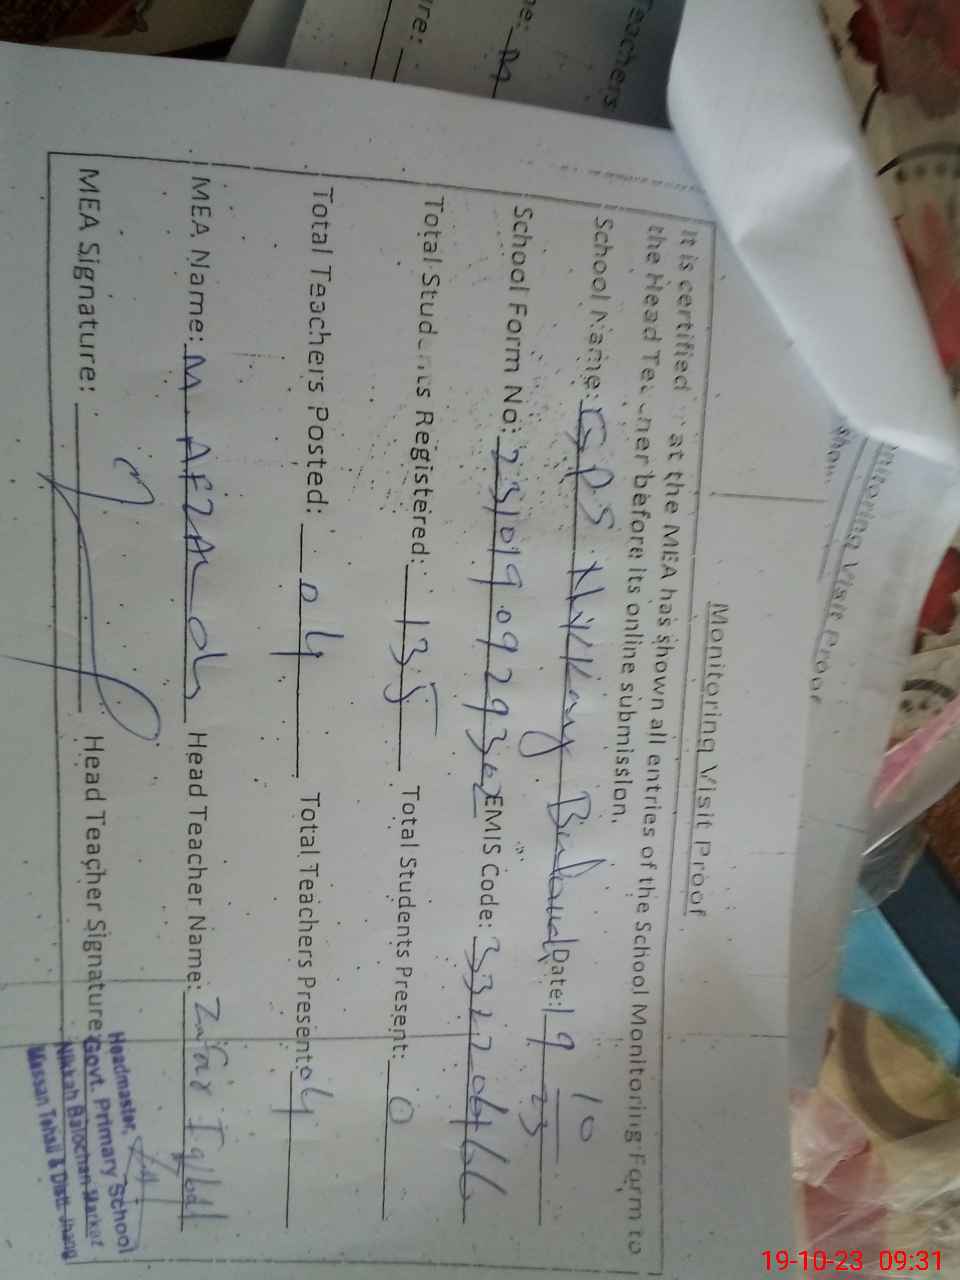 Teachers
Monitoring Visit Proof
Monitoring Visit Proof
It is certified that the MEA has shown all entries of the School Monitoring Form to
the Head Teacher before its online submission.
School Name: GPS Date: 19 10 23
School Form No: EMIS Code: 33220466
Total Students Registered: 135 Total Students Present: 0
Total Teachers Posted: 04 Total Teachers Present: 04
MEA Name: M. AFZAL Head Teacher Name: Zafar Iqbal
MEA Signature: Head Teacher Signature:
Headmaster,
Govt. Primary School
Nikkah Balochan Market
Massan Tehsil & Distt. Jhang
19-10-23 09:31